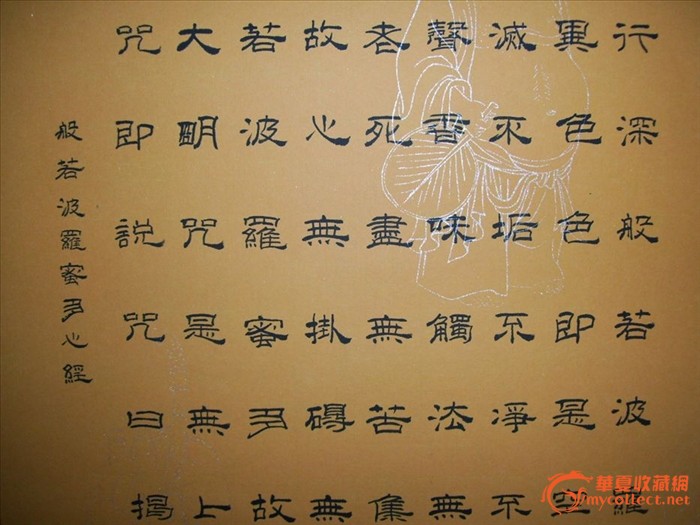 行深般若波羅
異色色即是空
滅不垢不淨不
聲香味觸法無
老死盡無苦集
故心無掛礙無
若波羅蜜多故
大明咒是無上
咒即說咒曰揭
般若波羅蜜多心經
華夏收藏網
mycollect.net